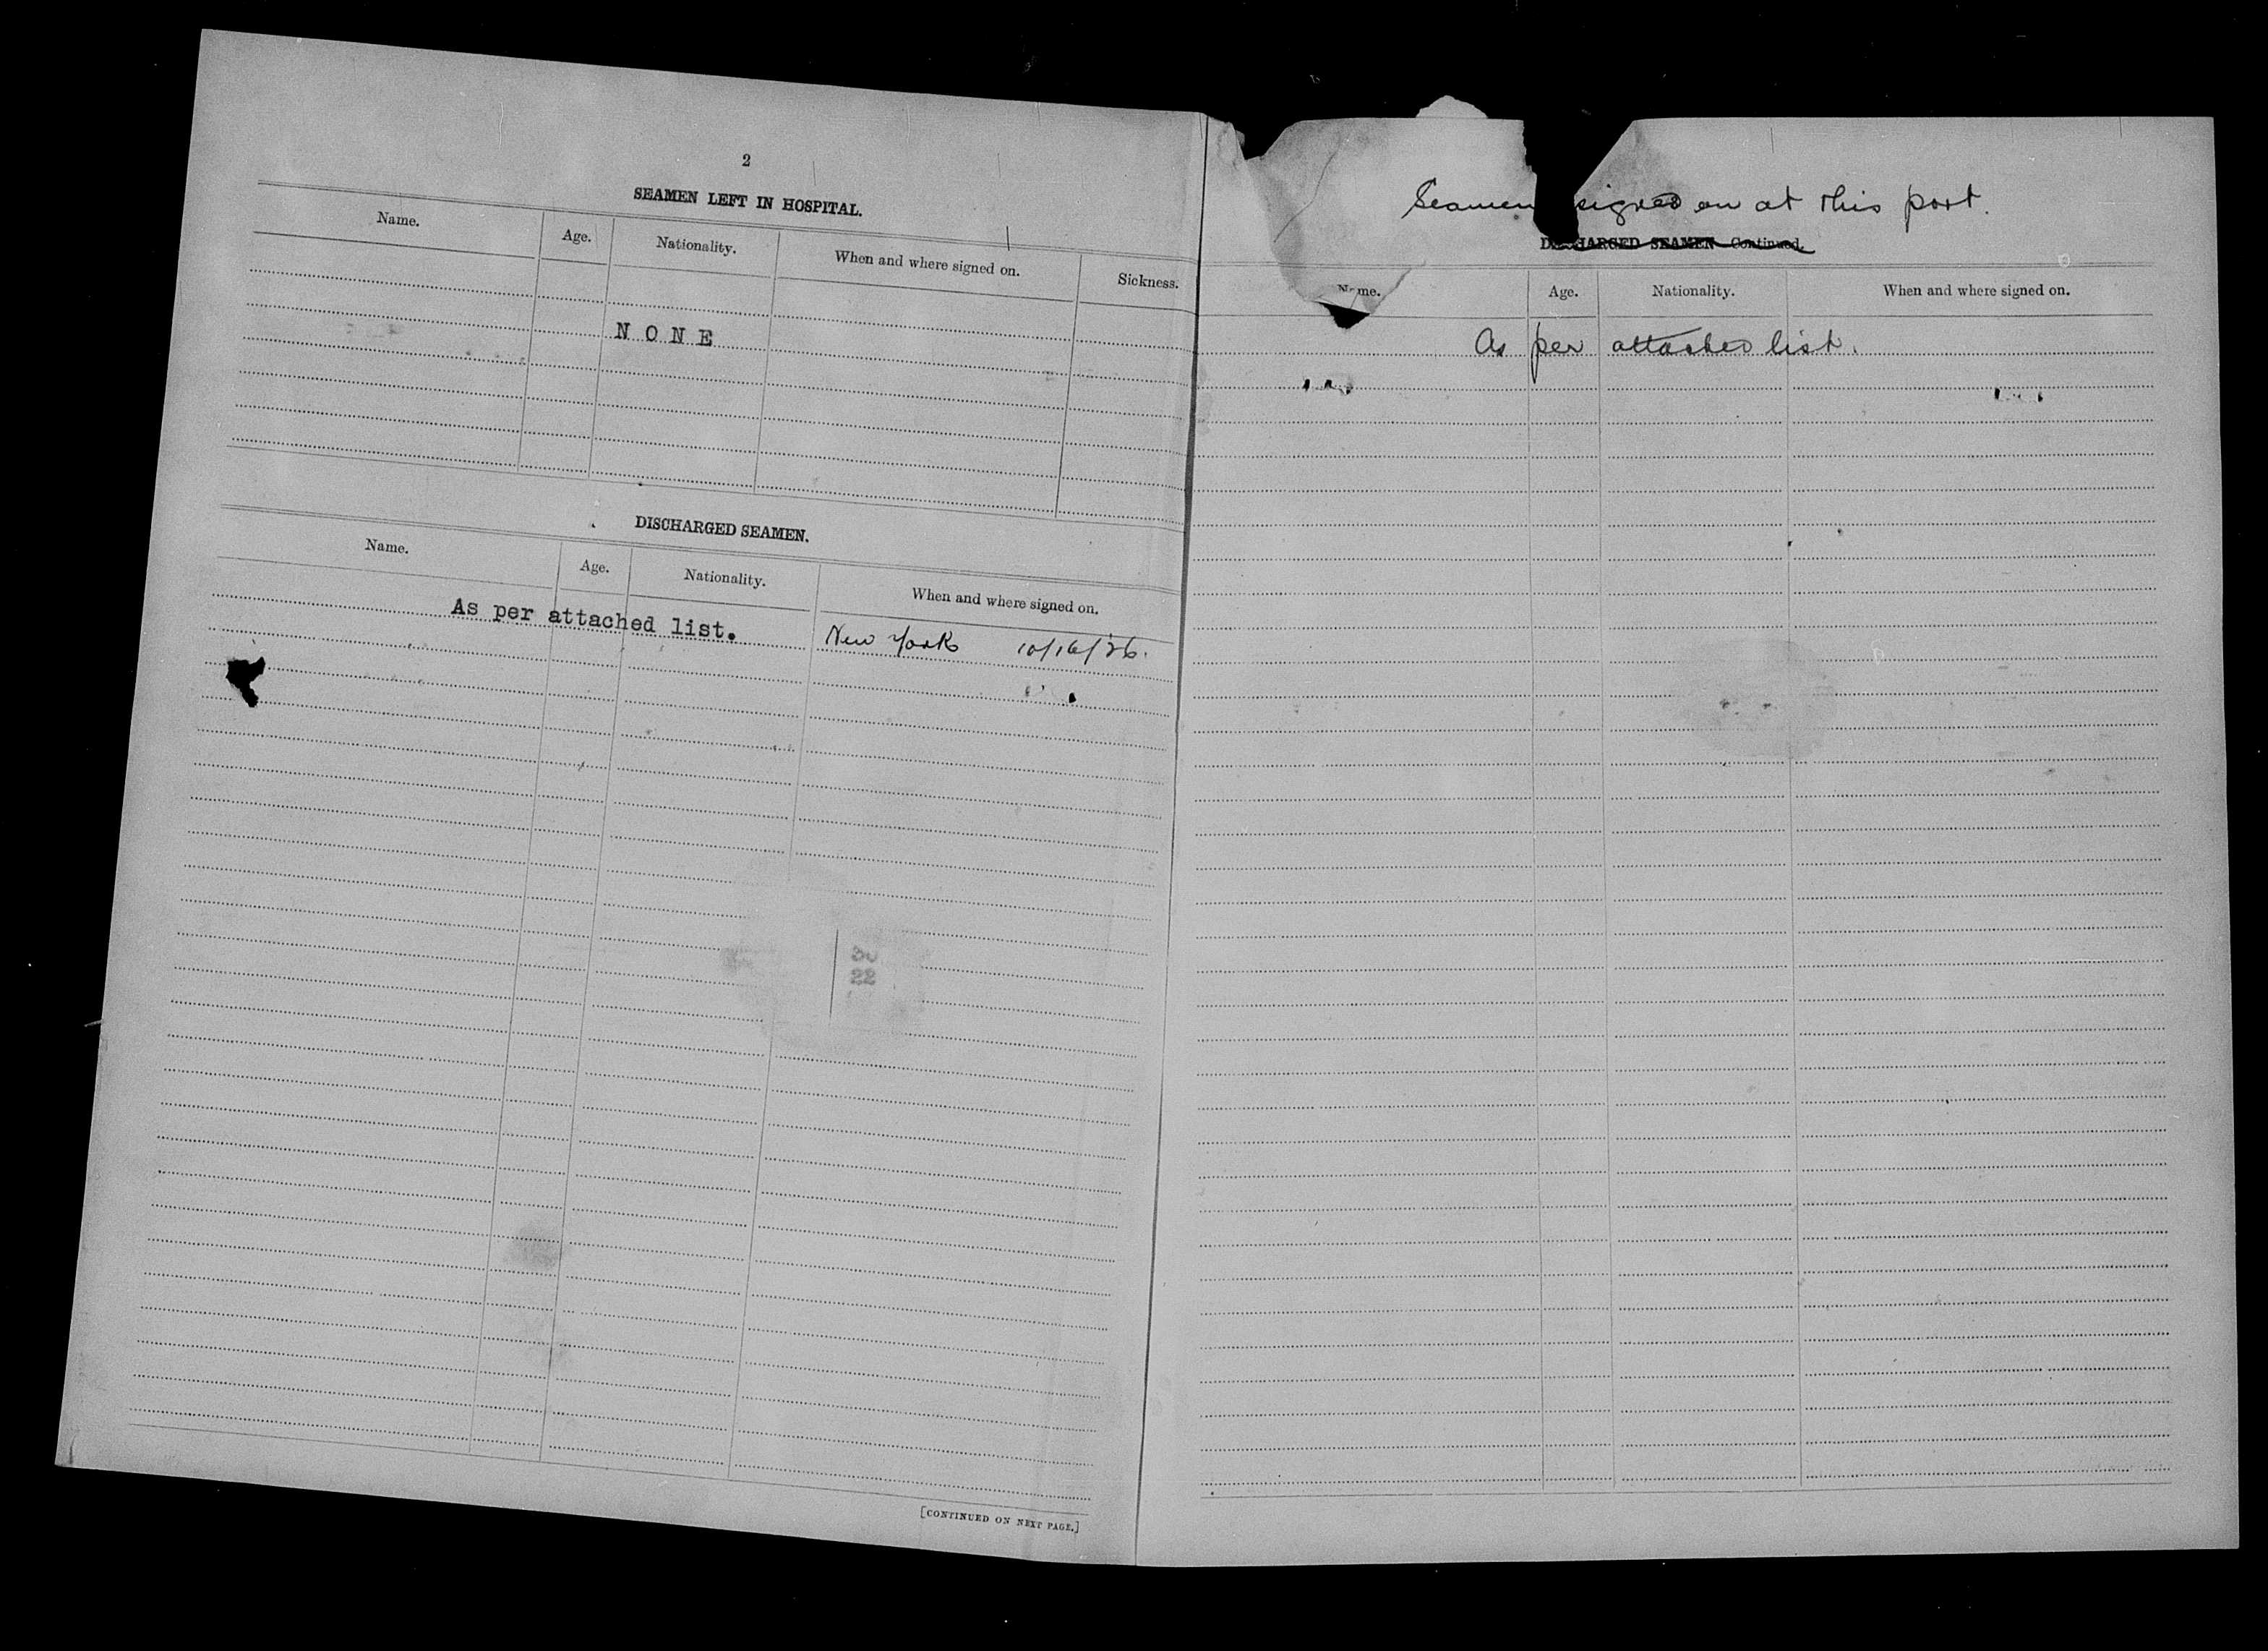 2
SEAMEN LEFT IN HOSPITAL.
Name. Age. Nationality. When and where signed on. Sickness.
NONE
DISCHARGED SEAMEN.
Name. Age. Nationality. When and where signed on.
As per attached list. New York 10/16/26.
22
[CONTINUED ON NEXT PAGE.]
Seamen signed on at this port.
DISCHARGED SEAMEN Continued.
Name. Age. Nationality. When and where signed on.
As per attached list.